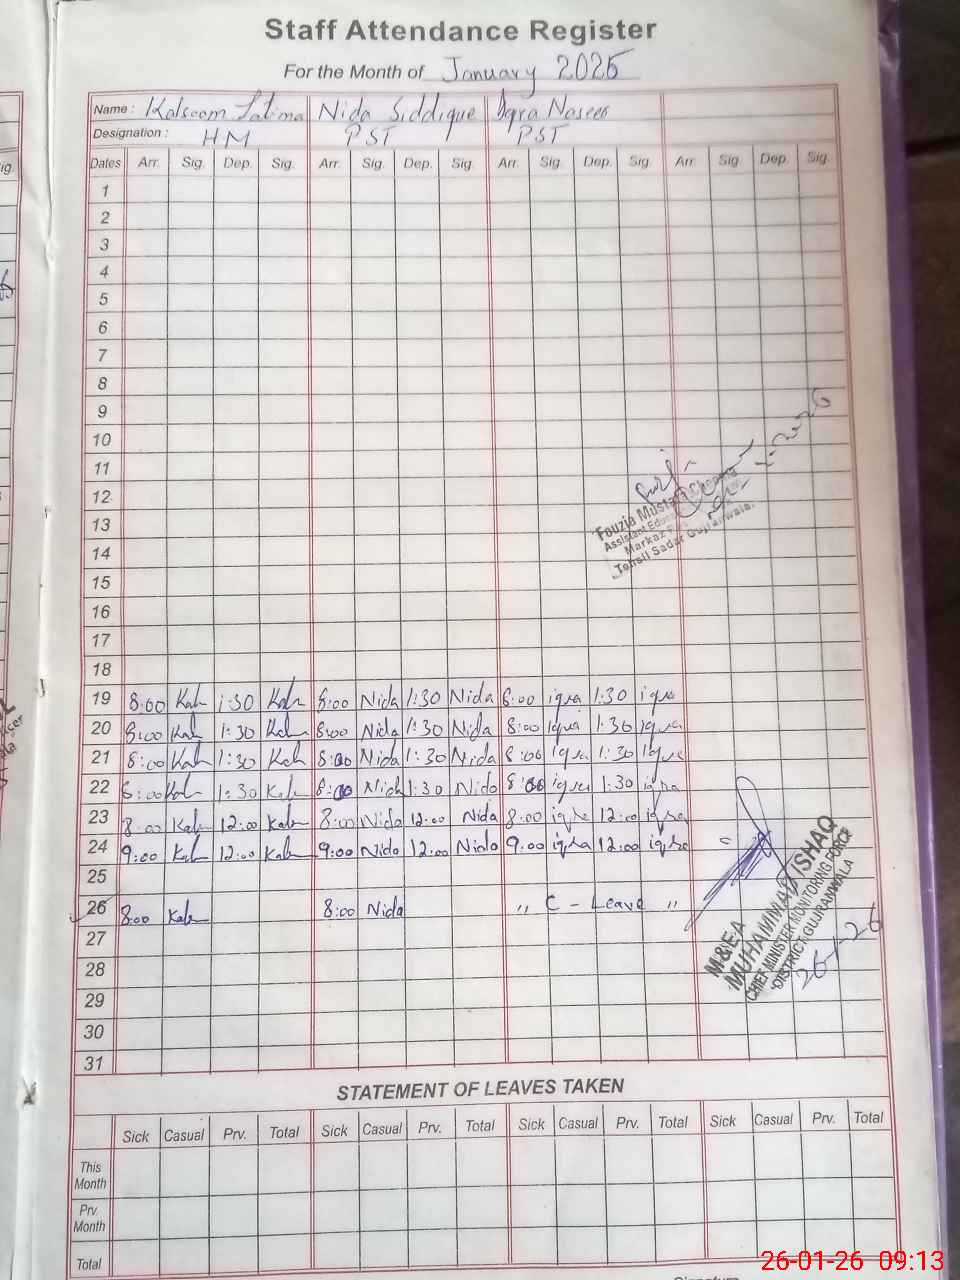 Staff Attendance Register
For the Month of January 2025
Name : Kalsoom Fatima Nida Siddique Iqra Naseer
Designation : HM PST PST
Dates Arr. Sig. Dep. Sig. Arr. Sig. Dep. Sig. Arr. Sig. Dep. Sig. Arr. Sig Dep. Sig.
1
2
3
4
5
6
7
8
9
10
11
12
13
14
15
16
17
18
19 8:00 Kal 1:30 Kal 8:00 Nida 1:30 Nida 8:00 iqra 1:30 iqra
20 8:00 Kal 1:30 Kal 8:00 Nida 1:30 Nida 8:00 iqra 1:30 iqra
21 8:00 Kal 1:30 Kal 8:00 Nida 1:30 Nida 8:00 iqra 1:30 iqra
22 8:00 Kal 1:30 Kal 8:00 Nida 1:30 Nida 8:00 iqra 1:30 iqra
23 8:00 Kal 12:00 Kal 8:00 Nida 12:00 Nida 8:00 iqra 12:00 iqra
24 9:00 Kal 12:00 Kal 9:00 Nida 12:00 Nida 9:00 iqra 12:00 iqra
25
26 8:00 Kal 8:00 Nida " C - Leave "
27
28
29
30
31
Fouzia Mustafa
Assistant
Markaz
Tehsil Sadar Gujranwala.
M&EA
MUHAMMAD ISHAQ
CHIEF MINISTER MONITORING FORCE
DISTRICT GUJRANWALA
26-1-26
STATEMENT OF LEAVES TAKEN
Sick Casual Prv. Total Sick Casual Prv. Total Sick Casual Prv. Total Sick Casual Prv. Total
This
Month
Prv.
Month
Total
26-01-26 09:13